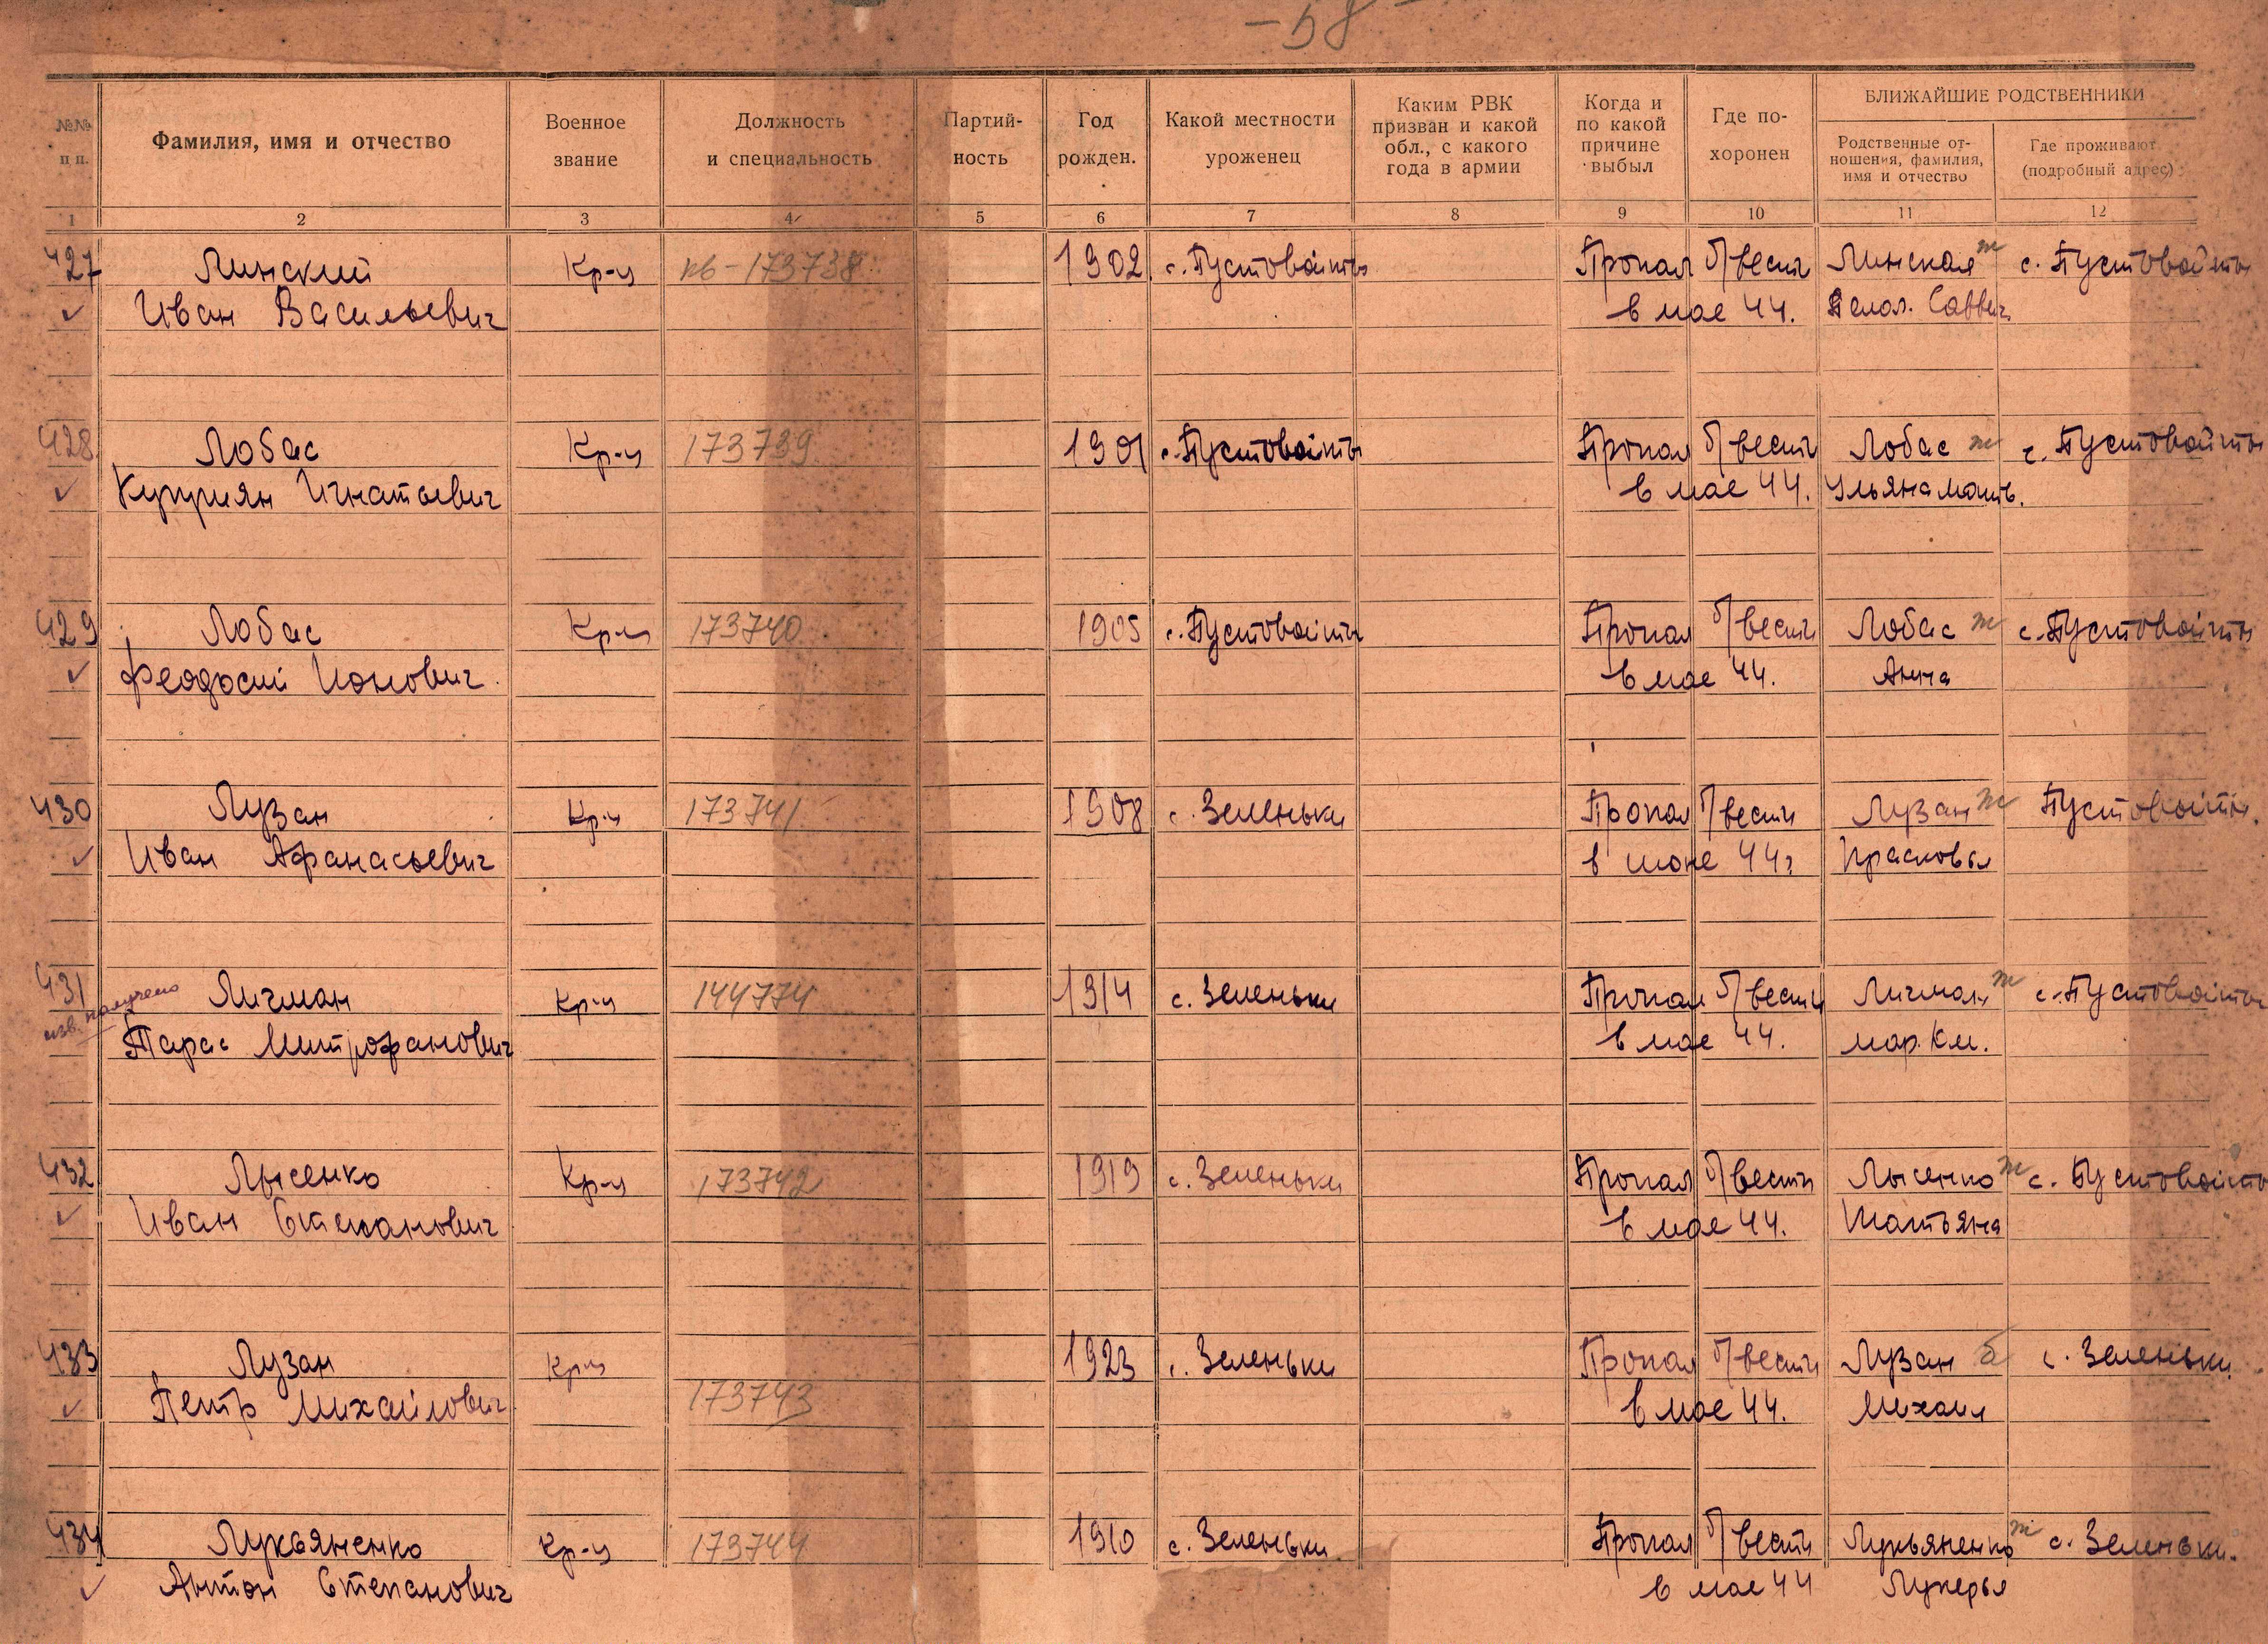 -58-
№№ п п.
Фамилия, имя и отчество
Военное звание
Должность и специальность
Партий-ность
Год рожден.
Какой местности уроженец
Каким РВК призван и какой обл., с какого года в армии
Когда и по какой причине выбыл
Где по-хоронен
БЛИЖАЙШИЕ РОДСТВЕННИКИ
Родственные от-ношения, фамилия, имя и отчество
Где проживают (подробный адрес)
1 2 3 4 5 6 7 8 9 10 11 12
427 Линский Кр-ц кв-173738 1902 с. Пустовойты Пропал б/вести Линская ж с. Пустовойты
Иван Васильевич в мае 44. Пелаг. Саввич.
428 Лобас Кр-ц 173739 1901 с. Пустовойты Пропал б/вести Лобас ж с. Пустовойты
Куприян Игнатьевич в мае 44. Ульяна Матв.
429 Лобас Кр-ц 173740 1905 с. Пустовойты Пропал б/вести Лобас ж с. Пустовойты
Феодосий Ионович в мае 44. Анна
430 Лузан Кр-ц 173741 1908 с. Зеленьки Пропал б/вести Лузан ж Пустовойты
Иван Афанасьевич в июне 44г Прасковья
431 Личман Кр-ц 144774 1914 с. Зеленьки Пропал б/вести Личман ж с. Пустовойты
изв. получено Тарас Митрофанович в мае 44. Мар. Кл.
432 Лысенко Кр-ц 173742 1919 с. Зеленьки Пропал б/вести Лысенко ж с. Пустовойты
Иван Степанович в мае 44. Татьяна
433 Лузан Кр-ц 1923 с. Зеленьки Пропал б/вести Лузан с. Зеленьки
Петр Михайлович 173743 в мае 44. Михаил
434 Лукьяненко Кр-ц 173744 1910 с. Зеленьки Пропал б/вести Лукьяненко ж с. Зеленьки.
Антон Степанович в мае 44 Лукерья